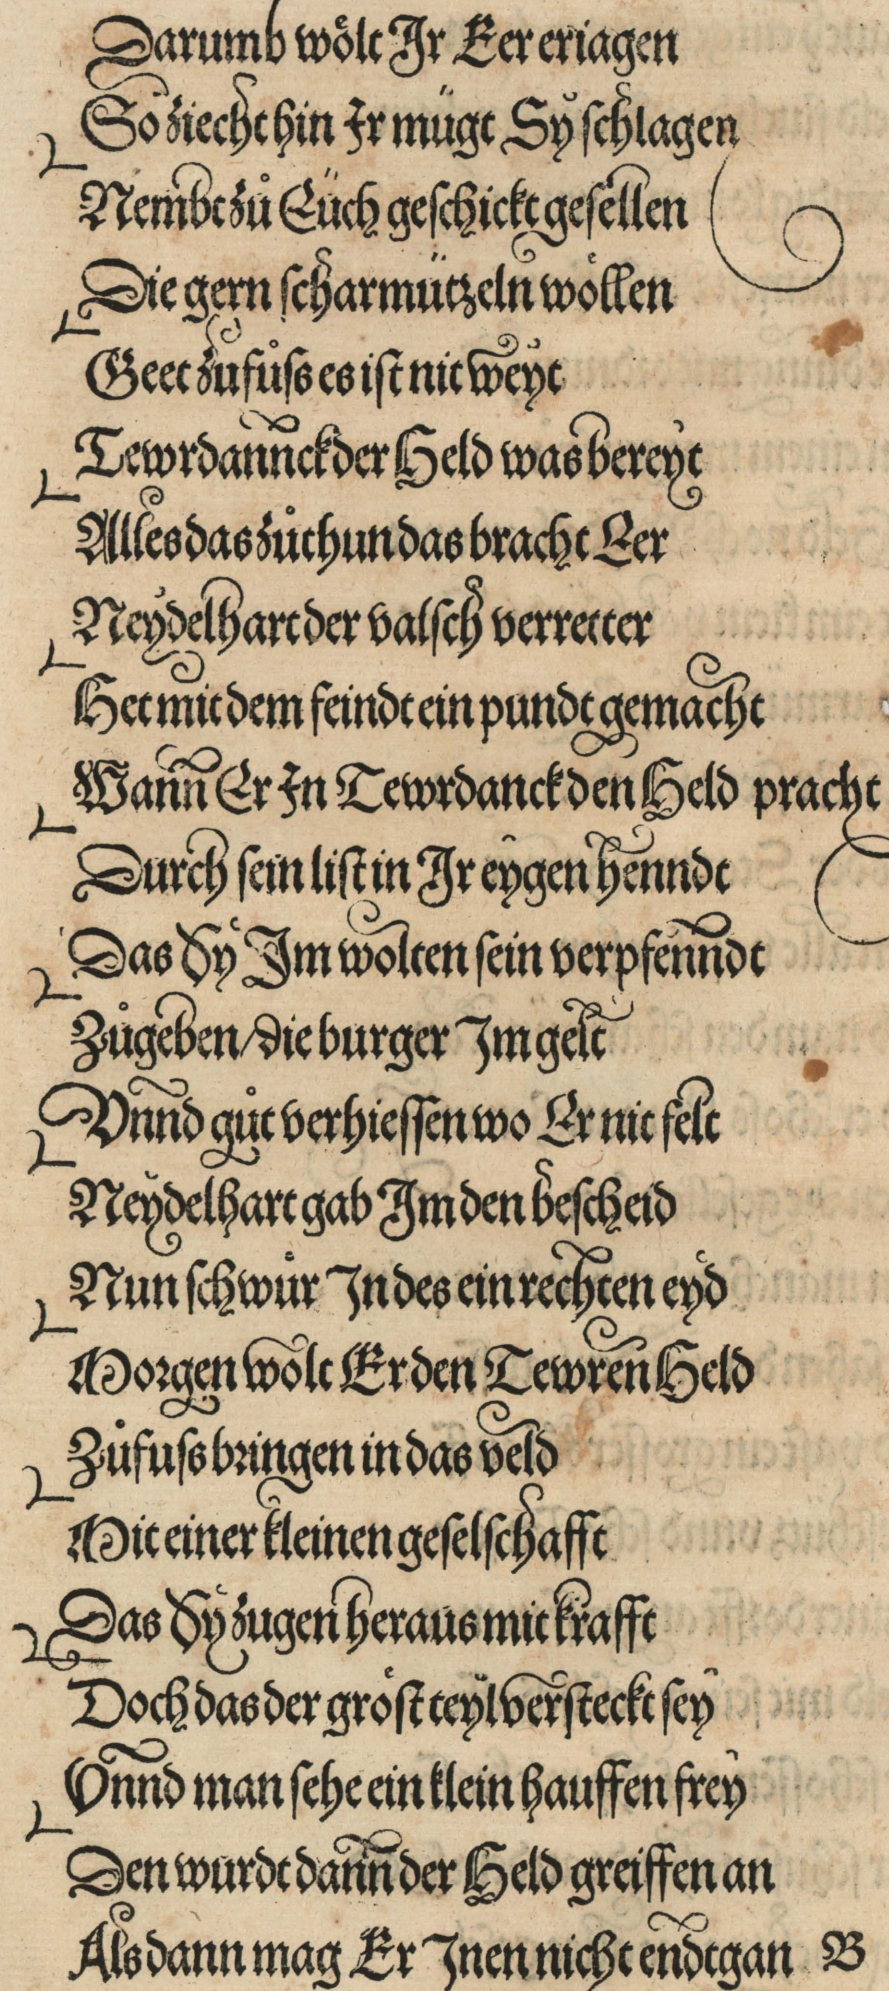 Darumb wölt Jr Eer eriagen
So ziecht hin Jr mügt Sy schlagen
Nembt zů Eüch geschickt gesellen
Die gern scharmützeln wöllen
Geet zufůss es ist nit weyt
Tewrdannck der Held was bereyt
Alles das zůthun das bracht Eer
Neydelhart der valsch verretter
Het mit dem feindt ein pundt gemacht
Wann Er Jn Tewrdanck den Held pracht
Durch sein list in Jr eygen henndt
Das Sy Jm wolten sein verpfenndt
Zůgeben/die burger Jm gelt
Vnnd gůt verhiessen wo Er nit felt
Neydelhart gab Jm den bescheid
Nun schwůr Jn des ein rechten eyd
Morgen wolt Er den Tewren Held
Zůfuss bringen in das veld
Mit einer kleinen geselschafft
Das Sy zugen heraus mit krafft
Doch das der gröst teyl versteckt sey
Vnnd man sehe ein klein hauffen frey
Den wurdt dann der Held greiffen an
Als dann mag Er Jnen nicht endtgan B